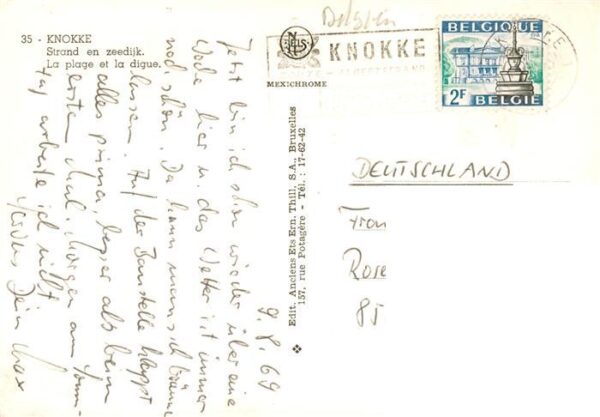 35 - KNOKKE
Strand en zeedijk.
La plage et la digue.
Belgien
NELS
MEXICHROME
KNOKKE
BELGIQUE
2F
BELGIË
9.8.69
Jetzt bin ich schon wieder über eine
Woche hier u. das Wetter ist immer
noch schön. Da kann man sich bräunen
lassen. Auf der Baustelle klappt
alles prima, besser als beim
ersten Mal. Morgen am Sonn-
tag arbeite ich nicht
Dein Max
Edit. Anciens Ets Ern. Thill, S.A., Bruxelles
157, rue Potagère - Tél.: 17-62-42
DEUTSCHLAND
Frau
Rose
85